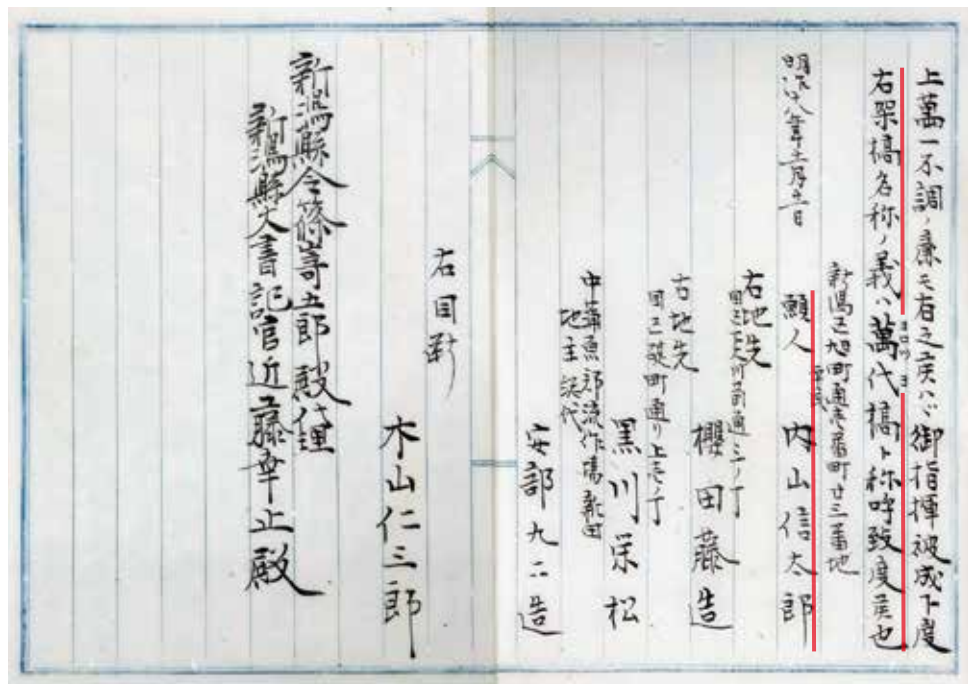 上萬一不調ノ廉モ有之候ハヾ御指揮被成下度
右架橋名称ノ義ハ萬代橋ト称呼致度候也
ヨロツヨ
新潟区旭町通壱番町廿三番地
平民
願人 内山信太郎
明治十八年十二月十二日
右地先
櫻田藤造
右地先
同区 町通り上壱ノ丁
黒川栄松
中蒲原郡流作場新田
地主総代
安部九二造
右同断
木山仁三郎
新潟縣令篠嵜五郎殿代理
新潟縣大書記官近藤幸止殿